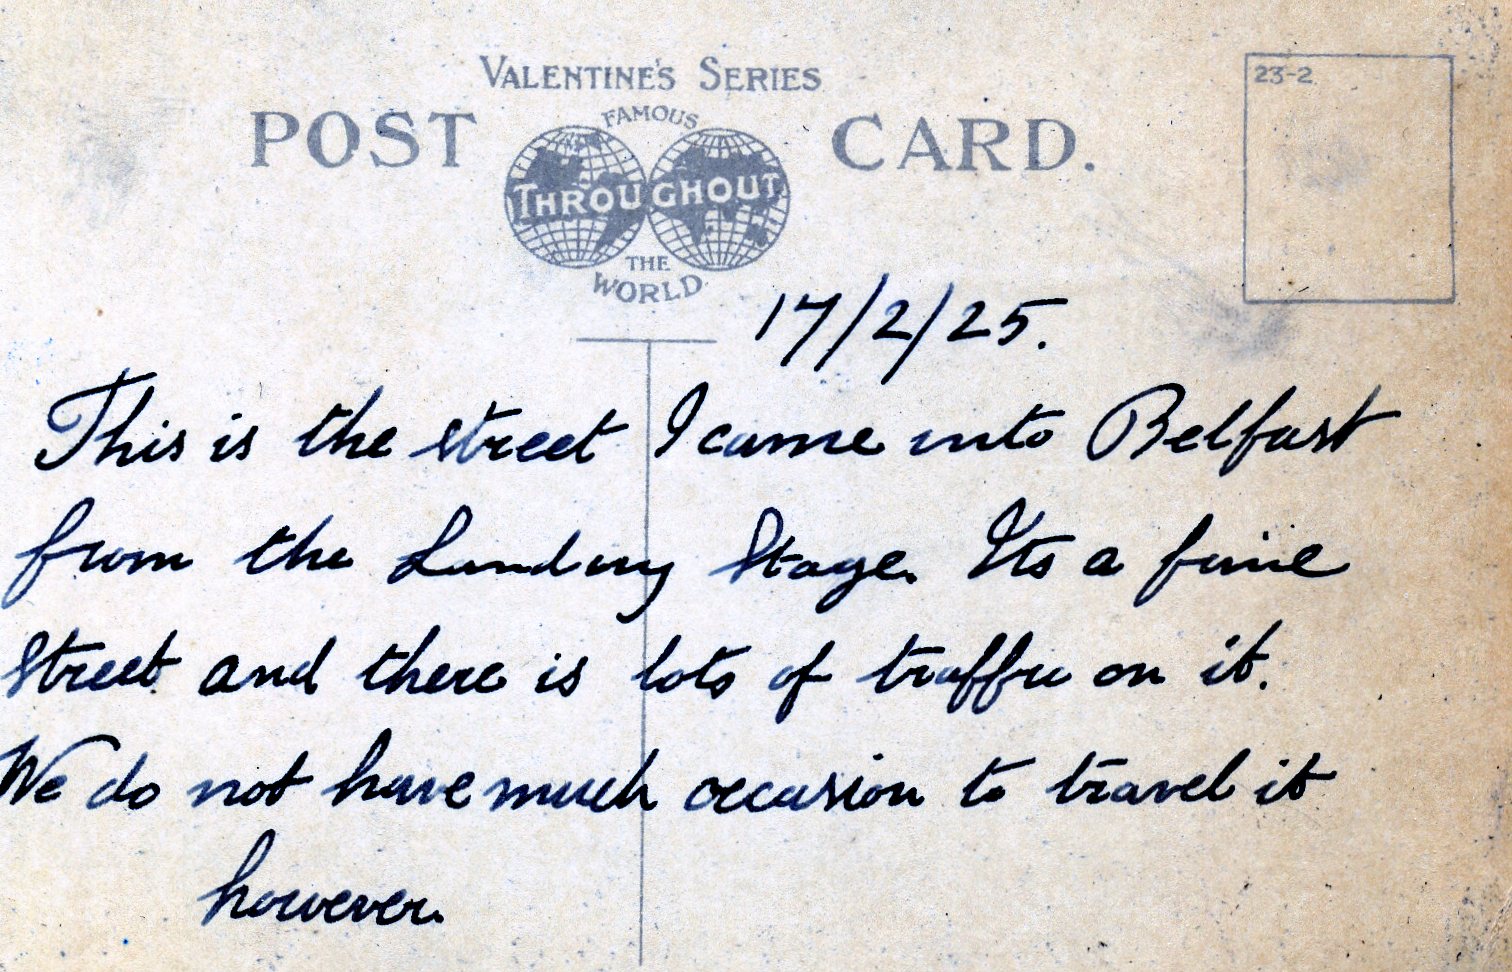 VALENTINE'S SERIES
POST CARD.
FAMOUS
THROUGHOUT
THE
WORLD
23-2
17/2/25.
This is the street I came into Belfast
from the Landing Stage. Its a fine
Street and there is lots of traffic on it.
We do not have much occasion to travel it
however.